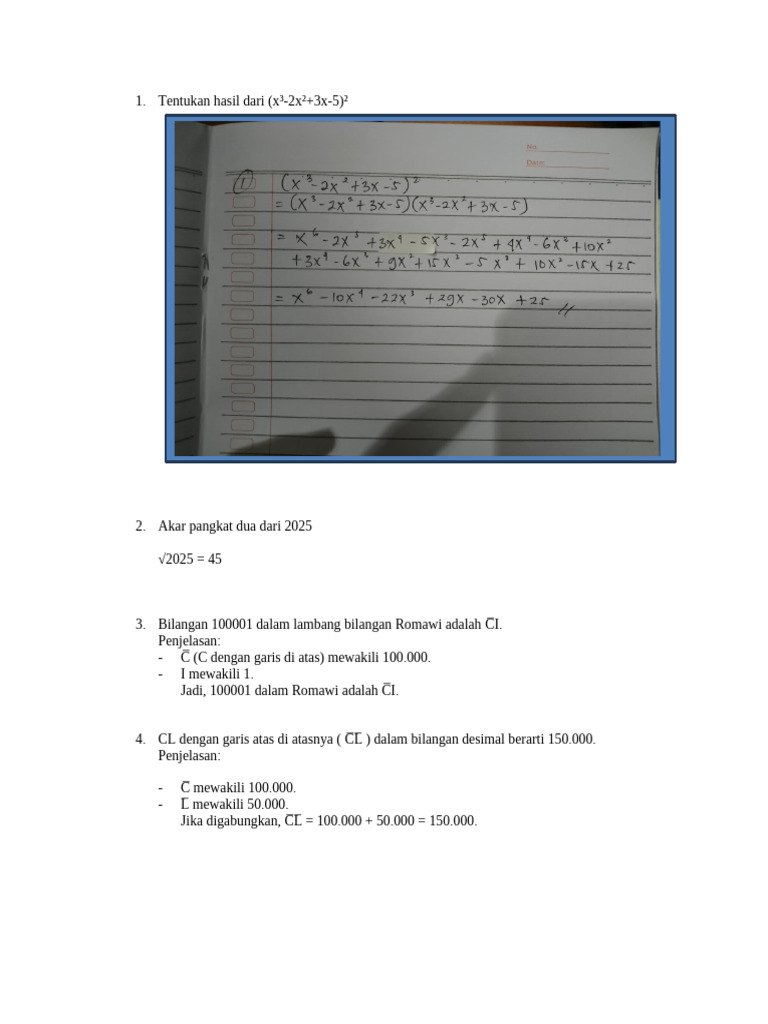 1. Tentukan hasil dari (x³-2x²+3x-5)²
No.
Date:
① (x³-2x²+3x-5)²
= (x³-2x²+3x-5)(x³-2x²+3x-5)
= x⁶-2x⁵+3x⁴-5x³-2x⁵+4x⁴-6x²+10x²
+3x⁴-6x³+9x²+15x²-5x³+10x²-15x+25
= x⁶-10x⁴-22x³+29x-30x+25 //
2. Akar pangkat dua dari 2025
√2025 = 45
3. Bilangan 100001 dalam lambang bilangan Romawi adalah C̅I.
Penjelasan:
- C̅ (C dengan garis di atas) mewakili 100.000.
- I mewakili 1.
Jadi, 100001 dalam Romawi adalah C̅I.
4. CL dengan garis atas di atasnya ( C̅L̅ ) dalam bilangan desimal berarti 150.000.
Penjelasan:
- C̅ mewakili 100.000.
- L̅ mewakili 50.000.
Jika digabungkan, C̅L̅ = 100.000 + 50.000 = 150.000.